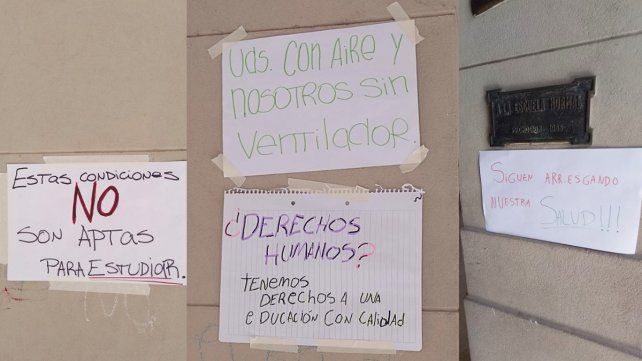 Estas condiciones
NO
son aptas
para Estudiar.
Uds. con Aire y
nosotros sin
ventilador.
¿Derechos
Humanos?
Tenemos
Derechos a una
educación con calidad
A LA ESCUELA NORMAL
Siguen arriesgando
nuestra Salud!!!